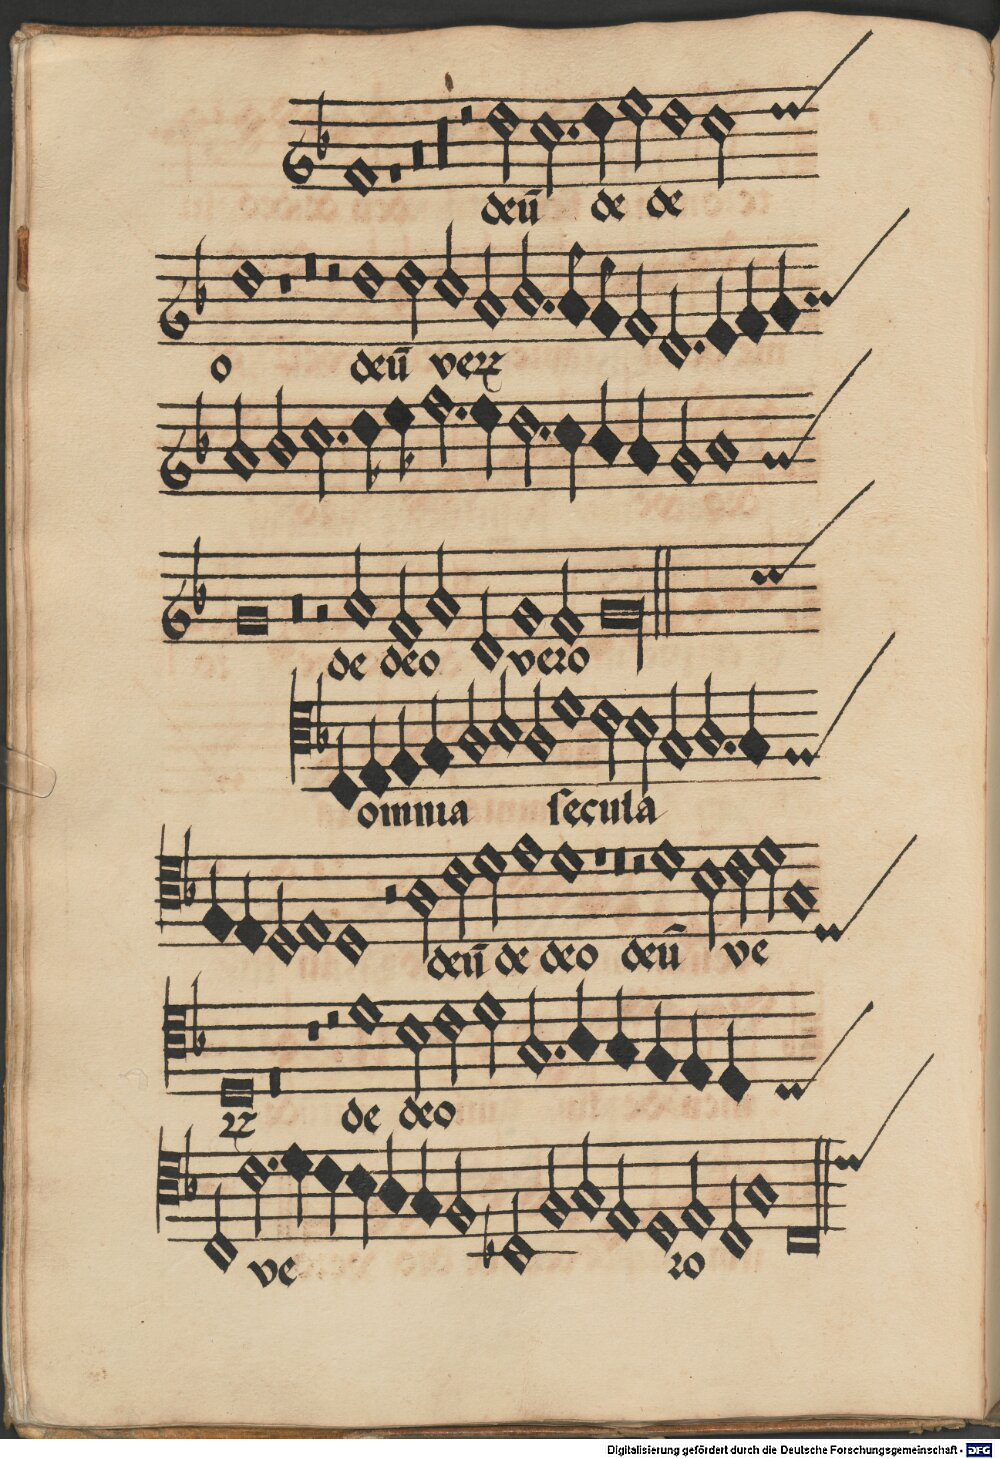 deū de de
o deū verꝝ
de deo vero
omnia secula
deū de deo deū ve
ꝝ de deo
ve ro
Digitalisierung gefördert durch die Deutsche Forschungsgemeinschaft - DFG